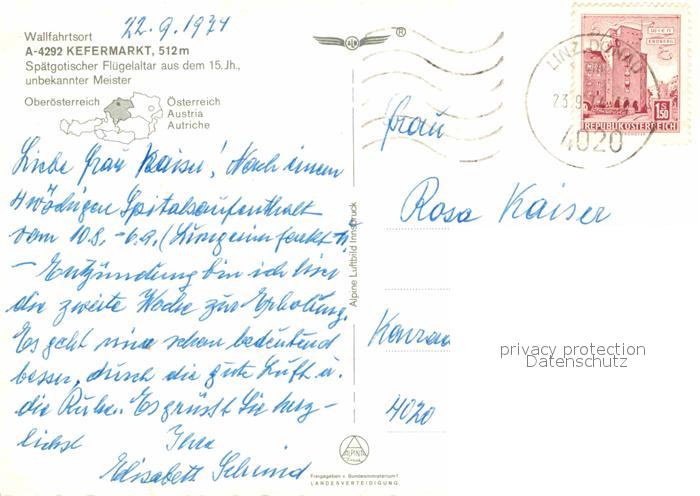 22.9.1974
Wallfahrtsort
A-4292 KEFERMARKT, 512 m
Spätgotischer Flügelaltar aus dem 15.Jh.,
unbekannter Meister
Oberösterreich
Österreich
Austria
Autriche
Liebe Frau Kaiser! Nach einem
4 wöchigen Spitalsaufenthalt
vom 10.8. - 6.9. (Lungeninfarkt u.
- Entzündung bin ich hier
die zweite Woche zur Erholung.
Es geht mir schon bedeutend
besser, durch die gute Luft u.
die Ruhe. Es grüsst Sie herz-
lichst Ihre
Elisabeth Schmid
Alpine Luftbild Innsbruck
ALPINE
Freigegeben v. Bundesministerium f.
LANDESVERTEIDIGUNG
LINZ, DONAU
23.9.74
4020
WIEN
ERDBERG
S 1.50
REPUBLIK ÖSTERREICH
Frau
Rosa Kaiser
Konrad
4020
privacy protection
Datenschutz